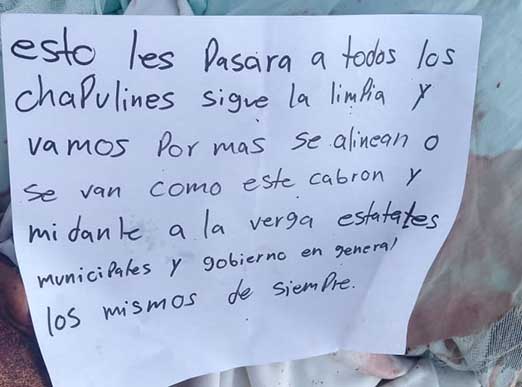 esto les Pasara a todos los
chaPulines sigue la limPia y
vamos Por mas se alinean o
se van como este cabron y
midanle a la verga estatales
municiPales y gobierno en general
los mismos de siemPre.